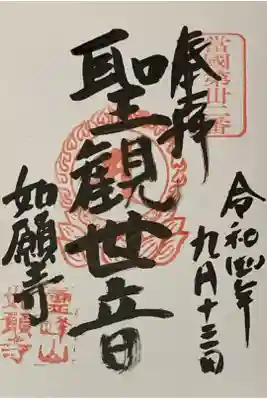 當國第卅二番
奉拜
令和四年
九月十三日
聖觀世音
如願寺
靈峰山
如願寺